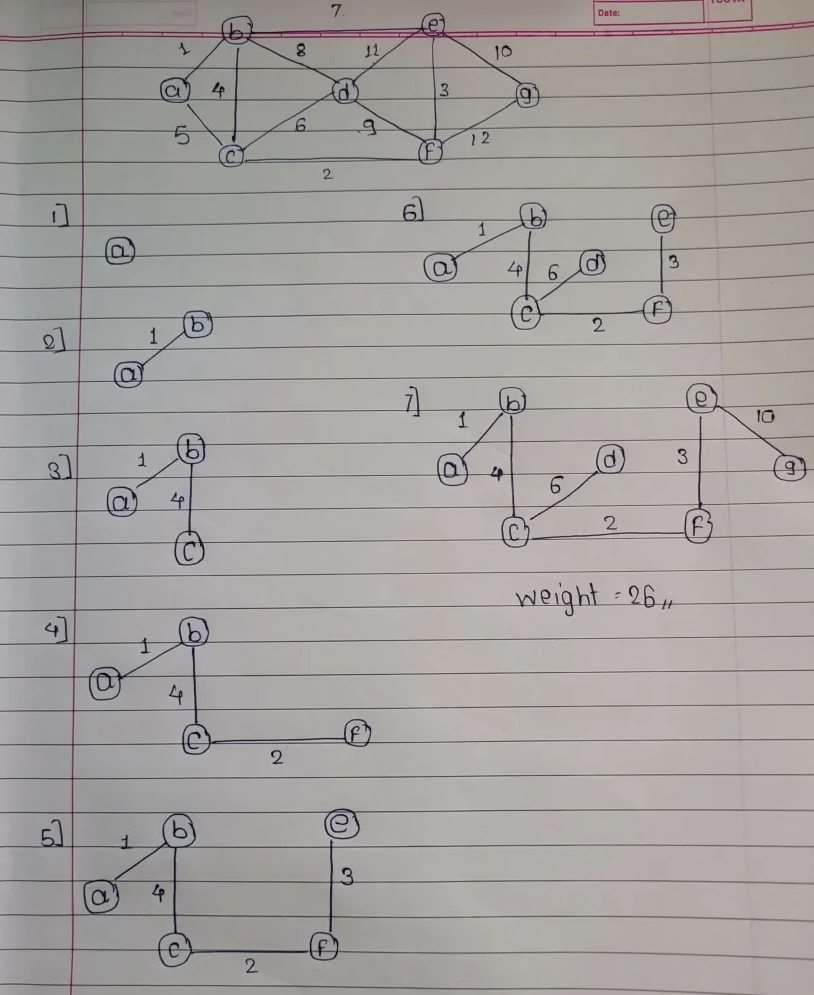 Date:
7
b e
1 8 11 10
a 4 d 3 g
5 6 9 12
c f
2
1]
a
2]
1 b
a
3]
1 b
a 4
c
4]
1 b
a
4
c f
2
5]
1 b e
a 4 3
c f
2
6]
1 b e
a 4 6 d 3
c f
2
7]
1 b e 10
a 4 6 d 3 g
c 2 f
weight = 26,,